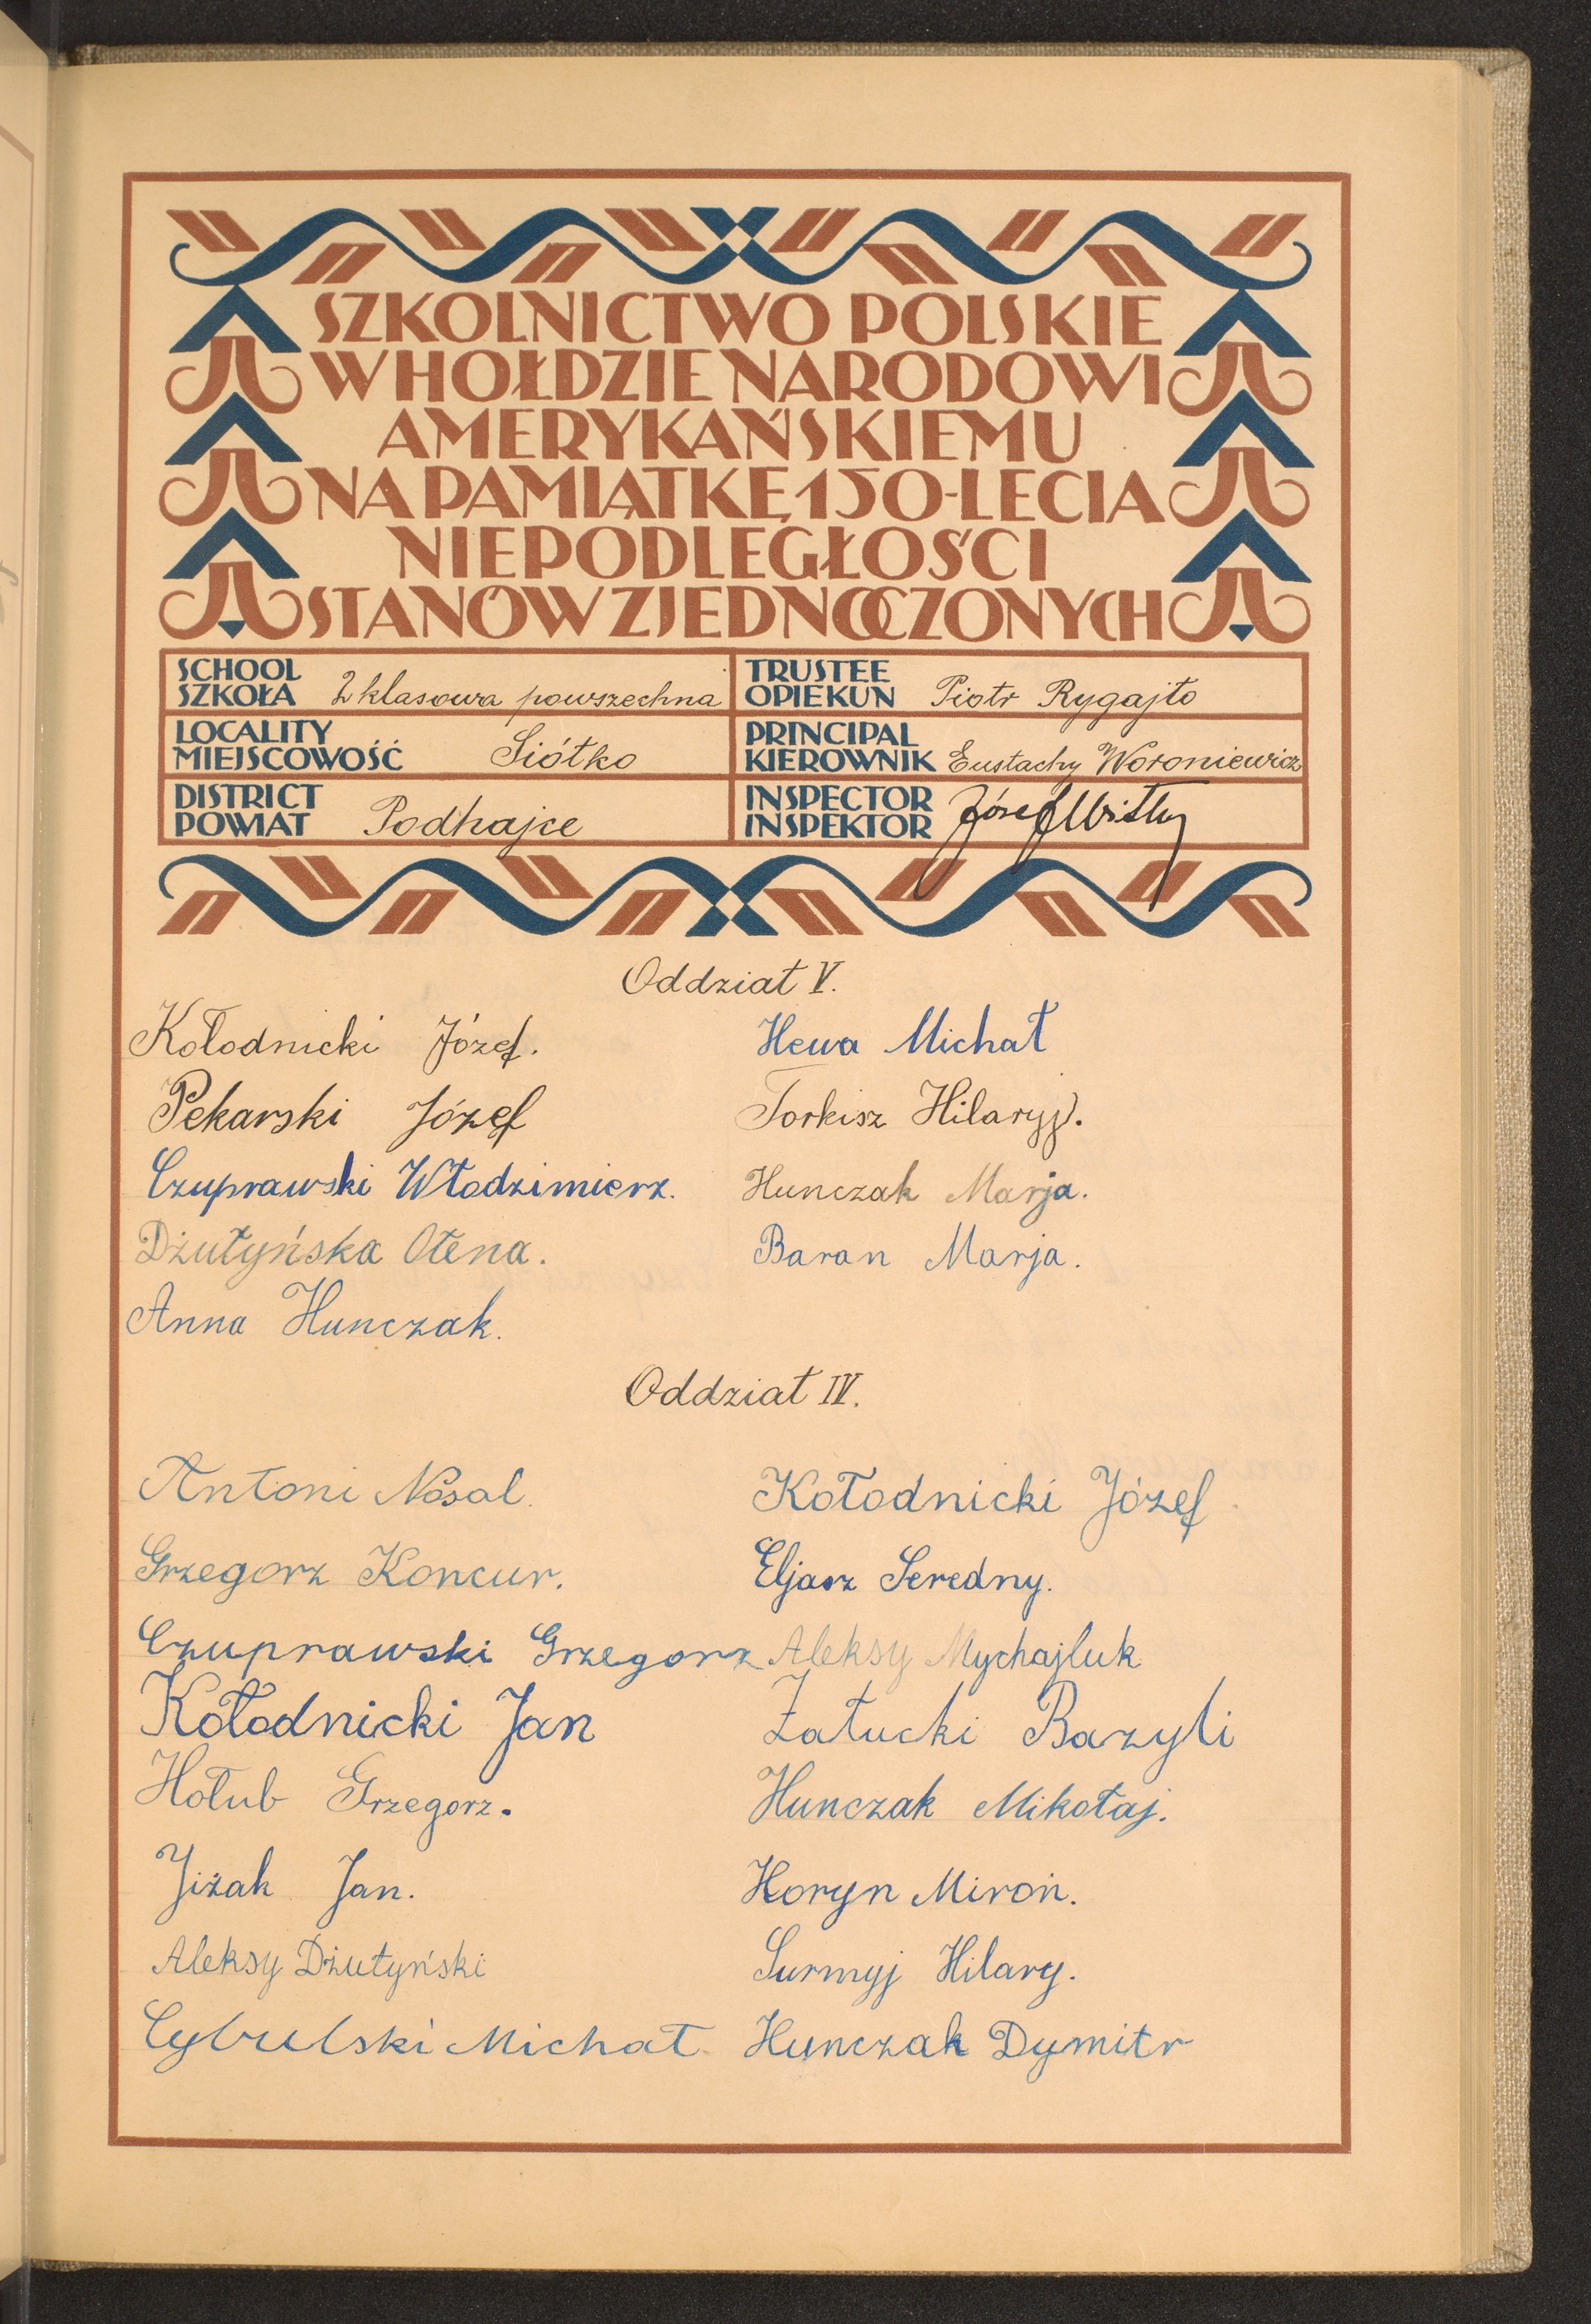 SZKOLNICTWO POLSKIE
W HOŁDZIE NARODOWI
AMERYKAŃSKIEMU
NA PAMIĄTKĘ 150-LECIA
NIEPODLEGŁOŚCI
STANÓW ZJEDNOCZONYCH
SCHOOL
SZKOŁA 2 klasowa powszechna
TRUSTEE
OPIEKUN Piotr Rygajło
LOCALITY
MIEJSCOWOŚĆ Siółko
PRINCIPAL
KIEROWNIK Eustachy Woroniewicz
DISTRICT
POWIAT Podhajce
INSPECTOR
INSPEKTOR Józef
Oddział V.
Kołodnicki Józef.
Hewa Michał
Pekarski Józef
Torkisz Hilaryj.
Czuprawski Włodzimierz.
Hunczak Marja.
Dżułyńska Ołena.
Baran Marja.
Anna Hunczak.
Oddział IV.
Antoni Nosal.
Kołodnicki Józef.
Grzegorz Koncur.
Eljasz Seredny.
Czuprawski Grzegorz
Aleksy Mychajluk
Kołodnicki Jan
Załucki Bazyli
Hołub Grzegorz.
Hunczak Mikołaj.
Jiżak Jan.
Horyn Miron.
Aleksy Dżułyński
Surmyj Hilary.
Cybulski Michał.
Hunczak Dymitr